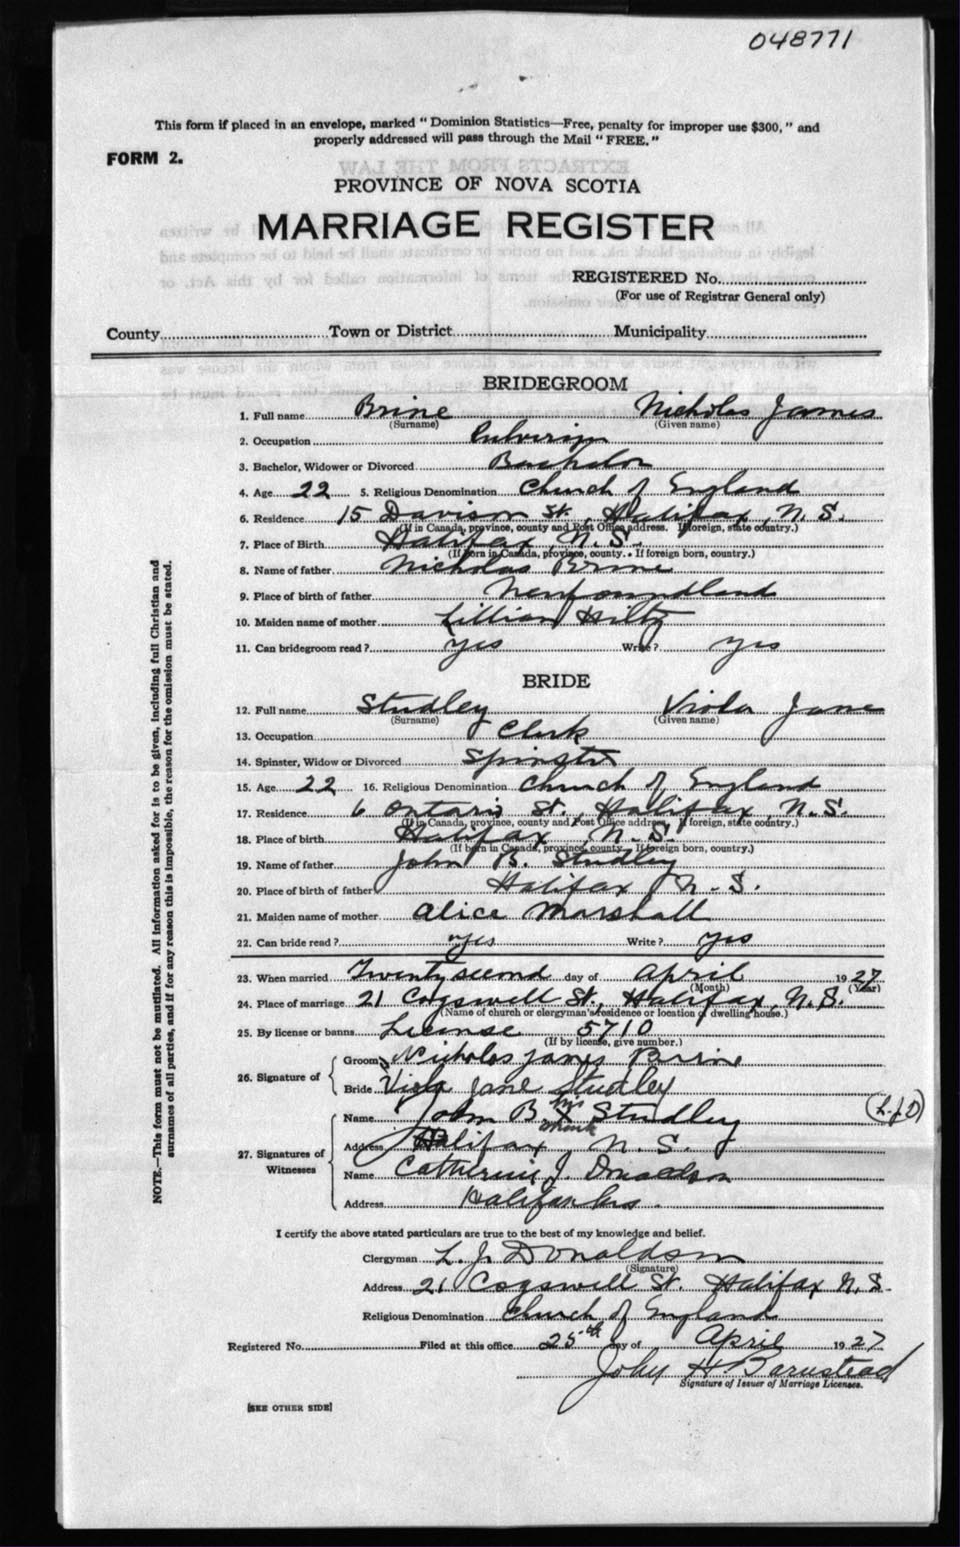 048771
This form if placed in an envelope, marked "Dominion Statistics—Free, penalty for improper use $300," and
properly addressed will pass through the Mail "FREE."
FORM 2.
PROVINCE OF NOVA SCOTIA
MARRIAGE REGISTER
REGISTERED No.
(For use of Registrar General only)
County Town or District Municipality
BRIDEGROOM
1. Full name Brine Nicholas James
(Surname) (Given name)
2. Occupation
3. Bachelor, Widower or Divorced Bachelor
4. Age 22 5. Religious Denomination Church of England
6. Residence 15 Davison St., Halifax, N.S.
(If in Canada, province, county and Post Office address. If foreign, state country.)
7. Place of Birth Halifax, N.S.
(If born in Canada, province, county. If foreign born, country.)
8. Name of father Nicholas Brine
9. Place of birth of father Newfoundland
10. Maiden name of mother Lillian Hiltz
11. Can bridegroom read? yes Write? yes
BRIDE
12. Full name Studley Viola Jane
(Surname) (Given name)
13. Occupation Clerk
14. Spinster, Widow or Divorced Spinster
15. Age 22 16. Religious Denomination Church of England
17. Residence 6 Ontario St., Halifax, N.S.
(If in Canada, province, county and Post Office address, If foreign, state country.)
18. Place of birth Halifax, N.S.
(If born in Canada, province, county. If foreign born, country.)
19. Name of father John B. Studley
20. Place of birth of father Halifax, N.S.
21. Maiden name of mother Alice Marshall
22. Can bride read? yes Write? yes
23. When married Twenty second day of April 1927
(Month) (Year)
24. Place of marriage 21 Cogswell St., Halifax, N.S.
(Name of church or clergyman's residence or location of dwelling house.)
25. By license or banns License 5710
(If by license, give number.)
26. Signature of
Groom Nicholas James Brine
Bride Viola Jane Studley
27. Signatures of Witnesses
Name John B Studley (L.J.D)
Address Halifax N.S.
Name Catherine J. Donaldson
Address
I certify the above stated particulars are true to the best of my knowledge and belief.
Clergyman L. J. Donaldson
(Signature)
Address 21 Cogswell St. Halifax N.S.
Religious Denomination Church of England
Registered No. Filed at this office 25th day of April 1927
John H Barnstead
Signature of Issuer of Marriage Licenses.
[SEE OTHER SIDE]
NOTE.—This form must not be mutilated. All information asked for is to be given, including full Christian and
surnames of all parties, and if for any reason this is impossible, the reason for the omission must be stated.